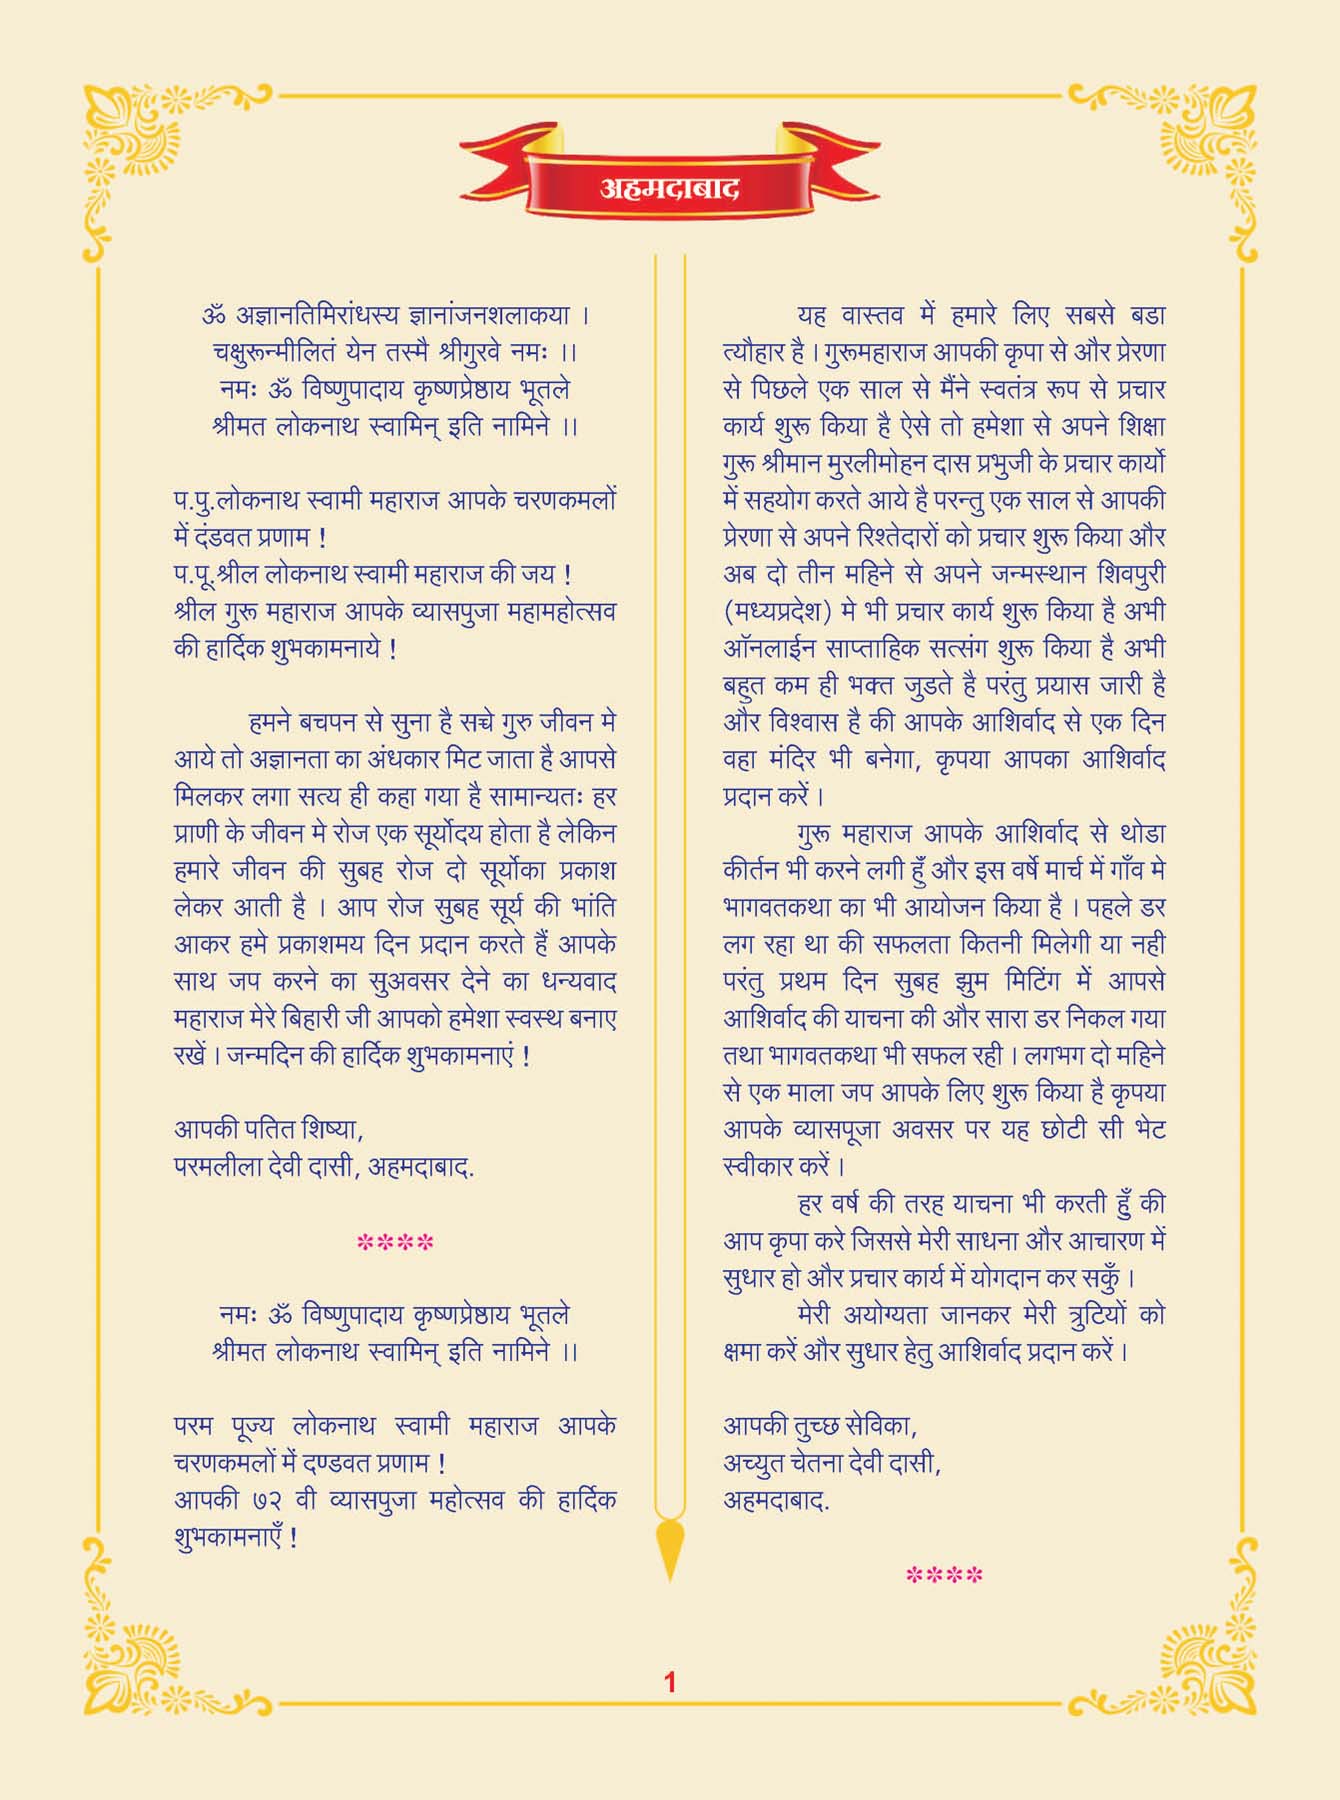 अहमदाबाद
ॐ अज्ञानतिमिरांधस्य ज्ञानांजनशलाकया ।
चक्षुरून्मीलितं येन तस्मै श्रीगुरवे नमः ।।
नमः ॐ विष्णुपादाय कृष्णप्रेष्ठाय भूतले
श्रीमत लोकनाथ स्वामिन् इति नामिने ।।
प.पु.लोकनाथ स्वामी महाराज आपके चरणकमलों
में दंडवत प्रणाम !
प.पू.श्रील लोकनाथ स्वामी महाराज की जय !
श्रील गुरू महाराज आपके व्यासपुजा महामहोत्सव
की हार्दिक शुभकामनाये !
हमने बचपन से सुना है सच्चे गुरु जीवन मे
आये तो अज्ञानता का अंधकार मिट जाता है आपसे
मिलकर लगा सत्य ही कहा गया है सामान्यतः हर
प्राणी के जीवन मे रोज एक सूर्योदय होता है लेकिन
हमारे जीवन की सुबह रोज दो सूर्योका प्रकाश
लेकर आती है । आप रोज सुबह सूर्य की भांति
आकर हमे प्रकाशमय दिन प्रदान करते हैं आपके
साथ जप करने का सुअवसर देने का धन्यवाद
महाराज मेरे बिहारी जी आपको हमेशा स्वस्थ बनाए
रखें । जन्मदिन की हार्दिक शुभकामनाएं !
आपकी पतित शिष्या,
परमलीला देवी दासी, अहमदाबाद.
****
नमः ॐ विष्णुपादाय कृष्णप्रेष्ठाय भूतले
श्रीमत लोकनाथ स्वामिन् इति नामिने ।।
परम पूज्य लोकनाथ स्वामी महाराज आपके
चरणकमलों में दण्डवत प्रणाम !
आपकी ७२ वी व्यासपुजा महोत्सव की हार्दिक
शुभकामनाएँ !
यह वास्तव में हमारे लिए सबसे बडा
त्यौहार है । गुरूमहाराज आपकी कृपा से और प्रेरणा
से पिछले एक साल से मैंने स्वतंत्र रूप से प्रचार
कार्य शुरू किया है ऐसे तो हमेशा से अपने शिक्षा
गुरू श्रीमान मुरलीमोहन दास प्रभुजी के प्रचार कार्यो
में सहयोग करते आये है परन्तु एक साल से आपकी
प्रेरणा से अपने रिश्तेदारों को प्रचार शुरू किया और
अब दो तीन महिने से अपने जन्मस्थान शिवपुरी
(मध्यप्रदेश) मे भी प्रचार कार्य शुरू किया है अभी
ऑनलाईन साप्ताहिक सत्संग शुरू किया है अभी
बहुत कम ही भक्त जुडते है परंतु प्रयास जारी है
और विश्वास है की आपके आशिर्वाद से एक दिन
वहा मंदिर भी बनेगा, कृपया आपका आशिर्वाद
प्रदान करें ।
गुरू महाराज आपके आशिर्वाद से थोडा
कीर्तन भी करने लगी हुँ और इस वर्षे मार्च में गाँव मे
भागवतकथा का भी आयोजन किया है । पहले डर
लग रहा था की सफलता कितनी मिलेगी या नही
परंतु प्रथम दिन सुबह झुम मिटिंग में आपसे
आशिर्वाद की याचना की और सारा डर निकल गया
तथा भागवतकथा भी सफल रही । लगभग दो महिने
से एक माला जप आपके लिए शुरू किया है कृपया
आपके व्यासपूजा अवसर पर यह छोटी सी भेट
स्वीकार करें ।
हर वर्ष की तरह याचना भी करती हुँ की
आप कृपा करे जिससे मेरी साधना और आचारण में
सुधार हो और प्रचार कार्य में योगदान कर सकुँ ।
मेरी अयोग्यता जानकर मेरी त्रुटियों को
क्षमा करें और सुधार हेतु आशिर्वाद प्रदान करें ।
आपकी तुच्छ सेविका,
अच्युत चेतना देवी दासी,
अहमदाबाद.
****
1